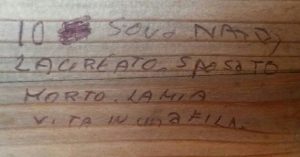 IO SONO NATO,
LAUREATO. SPOSATO
MORTO. LA MIA
VITA IN UNA FILA.